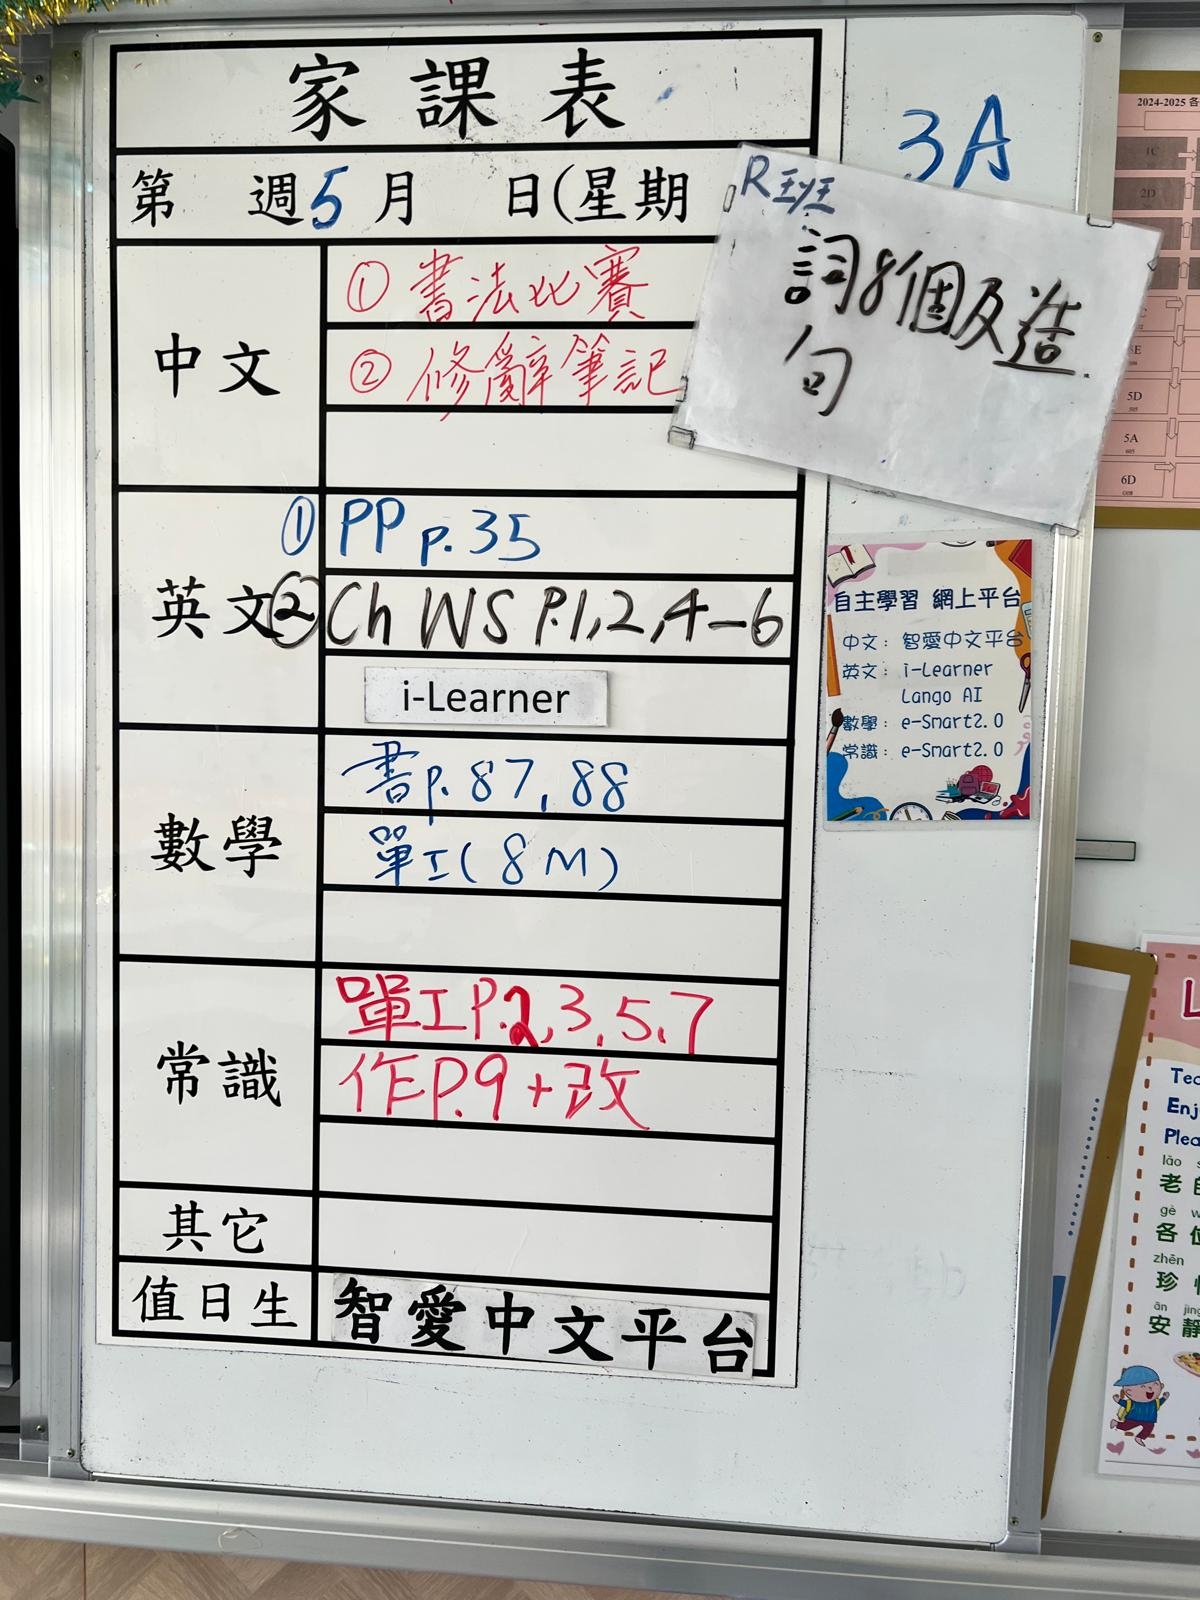 家課表
3A
第 週5月 日(星期
R班
詞8個及造
句
中文
① 書法比賽
② 修辭筆記
英文
① PP p.35
② Ch WS P.1,2,4-6
i-Learner
數學
書p.87,88
單工(8M)
常識
單工P.2,3,5,7
作P.9+改
其它
值日生
智愛中文平台
自主學習 網上平台
中文: 智愛中文平台
英文: i-Learner
Lango AI
數學: e-Smart2.0
常識: e-Smart2.0
2024-2025 各
1C
2D
5D
5A
605
6D
老
各位
珍
安靜
lǎo
gè
zhēn
ān jìng
Enj
Plea